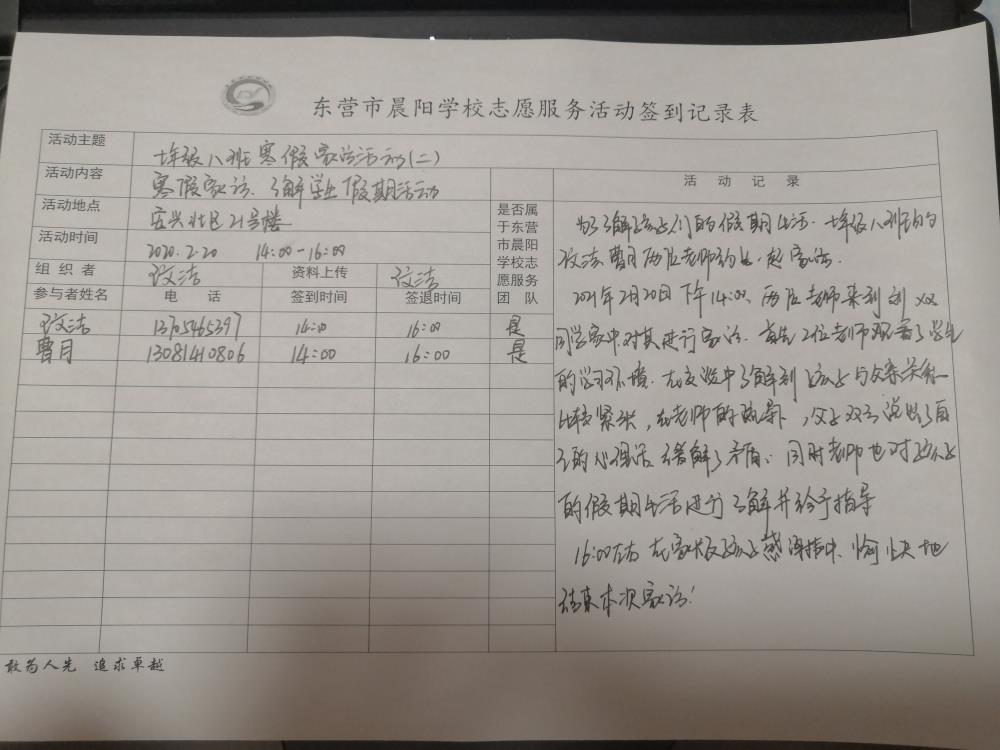 东营市晨阳学校志愿服务活动签到记录表
活动主题 七年级八班寒假家访活动(二)
活动内容 寒假家访、了解学生假期活动
活动地点 安兴北区21号楼
活动时间 2020.2.20 14:00-16:00
组织者 洁 资料上传 洁
参与者姓名 电话 签到时间 签退时间 是否属于东营市晨阳学校志愿服务团队
洁 13705465397 14:00 16:00 是
曹月 13081410806 14:00 16:00 是
活动记录
为了了解孩子们的假期生活.七年级八班的
洁 曹月两位老师约好一起家访.
2021年2月20日下午14:00,两位老师来到刘xx
同学家中对其进行家访.首先2位老师观看了学生
的学习环境.在交谈中了解到孩子与父亲关系
比较紧张,在老师的疏导下,父子双方说出了自
己的心理话 缓解了矛盾、同时老师也对孩子
的假期生活进行了解并给予指导
16:00左右 在家长及孩子感谢中、愉快地
结束本次家访!
敢为人先 追求卓越